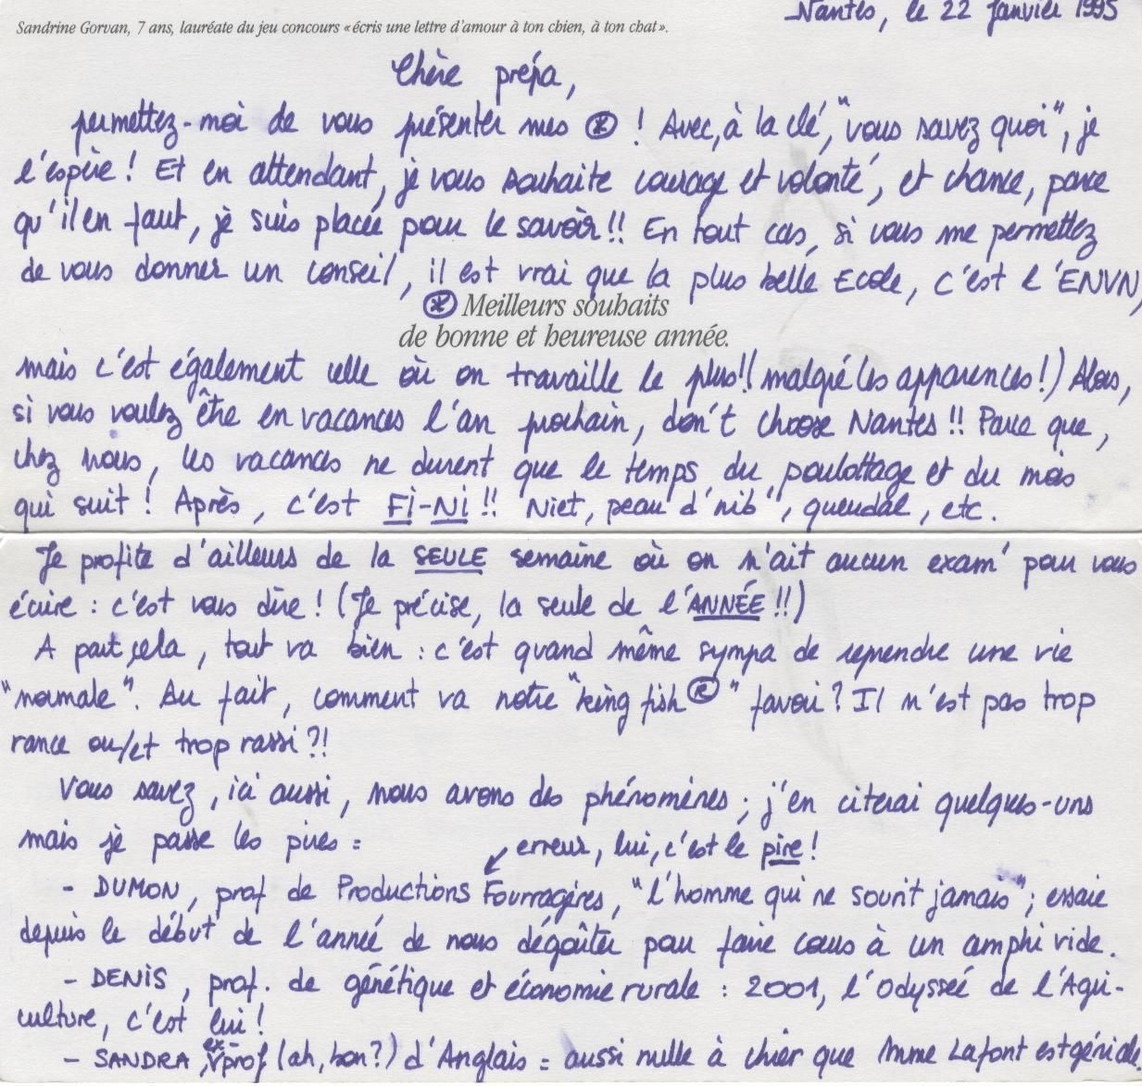 Nantes, le 22 janvier 1995
Sandrine Gorvan, 7 ans, lauréate du jeu concours « écris une lettre d'amour à ton chien, à ton chat ».
Chère prépa,
permettez-moi de vous présenter mes ⊛ ! Avec, à la clé, "vous savez quoi", je
l'espère ! Et en attendant, je vous souhaite courage et volonté, et chance, parce
qu'il en faut, je suis placée pour le savoir !! En tout cas, si vous me permettez
de vous donner un conseil, il est vrai que la plus belle Ecole, c'est l'ENVN,
⊛ Meilleurs souhaits
de bonne et heureuse année.
mais c'est également celle où on travaille le plus !! (malgré les apparences !) Alors,
si vous voulez être en vacances l'an prochain, don't choose Nantes !! Parce que,
chez nous, les vacances ne durent que le temps du poulottage et du mois
qui suit ! Après, c'est Fi-Ni !! Niet, peau d'nib", queudal, etc.
Je profite d'ailleurs de la SEULE semaine où on n'ait aucun exam' pour vous
écrire : c'est vous dire ! (Je précise, la seule de l'ANNÉE !!)
A part cela, tout va bien : c'est quand même sympa de reprendre une vie
"normale". Au fait, comment va notre "king fish ®" favori ? Il n'est pas trop
rance ou/et trop rassi ?!
Vous savez, ici aussi, nous avons des phénomènes ; j'en citerai quelques-uns
mais je passe les pires :
erreur, lui, c'est le pire !
- DUMON, prof de Productions Fourragères, "l'homme qui ne sourit jamais" ; essaie
depuis le début de l'année de nous dégoûter pour faire cours à un amphi vide.
- DENIS, prof. de génétique et économie rurale : 2001, l'odyssée de l'Agri-
culture, c'est lui !
- SANDRA, ex-prof (ah, bon ?) d'Anglais = aussi nulle à chier que Mme Lafont est géniale